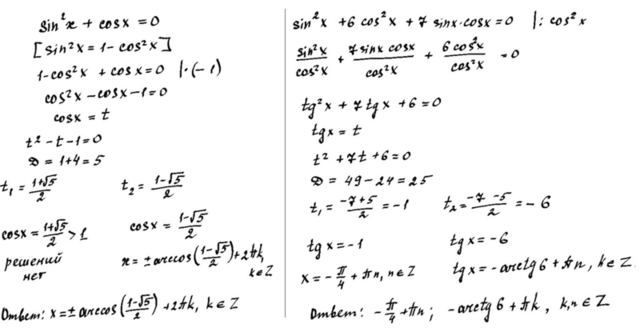 sin²x + cosx = 0
[sin²x = 1 - cos²x]
1 - cos²x + cosx = 0 |·(-1)
cos²x - cosx - 1 = 0
cosx = t
t² - t - 1 = 0
D = 1+4 = 5
t₁ = (1+√5)/2 t₂ = (1-√5)/2
cosx = (1+√5)/2 > 1 cosx = (1-√5)/2
решений нет x = ± arccos((1-√5)/2) + 2πk, k∈Z
Ответ: x = ± arccos((1-√5)/2) + 2πk, k∈Z
sin²x + 6cos²x + 7sinx·cosx = 0 |: cos²x
sin²x/cos²x + 7sinx cosx/cos²x + 6cos²x/cos²x = 0
tg²x + 7tgx + 6 = 0
tgx = t
t² + 7t + 6 = 0
D = 49 - 24 = 25
t₁ = (-7+5)/2 = -1 t₂ = (-7-5)/2 = -6
tgx = -1 tgx = -6
x = -π/4 + πn, n∈Z tgx = -arctg6 + πn, k∈Z
Ответ: -π/4 + πn; -arctg6 + πk, k,n∈Z